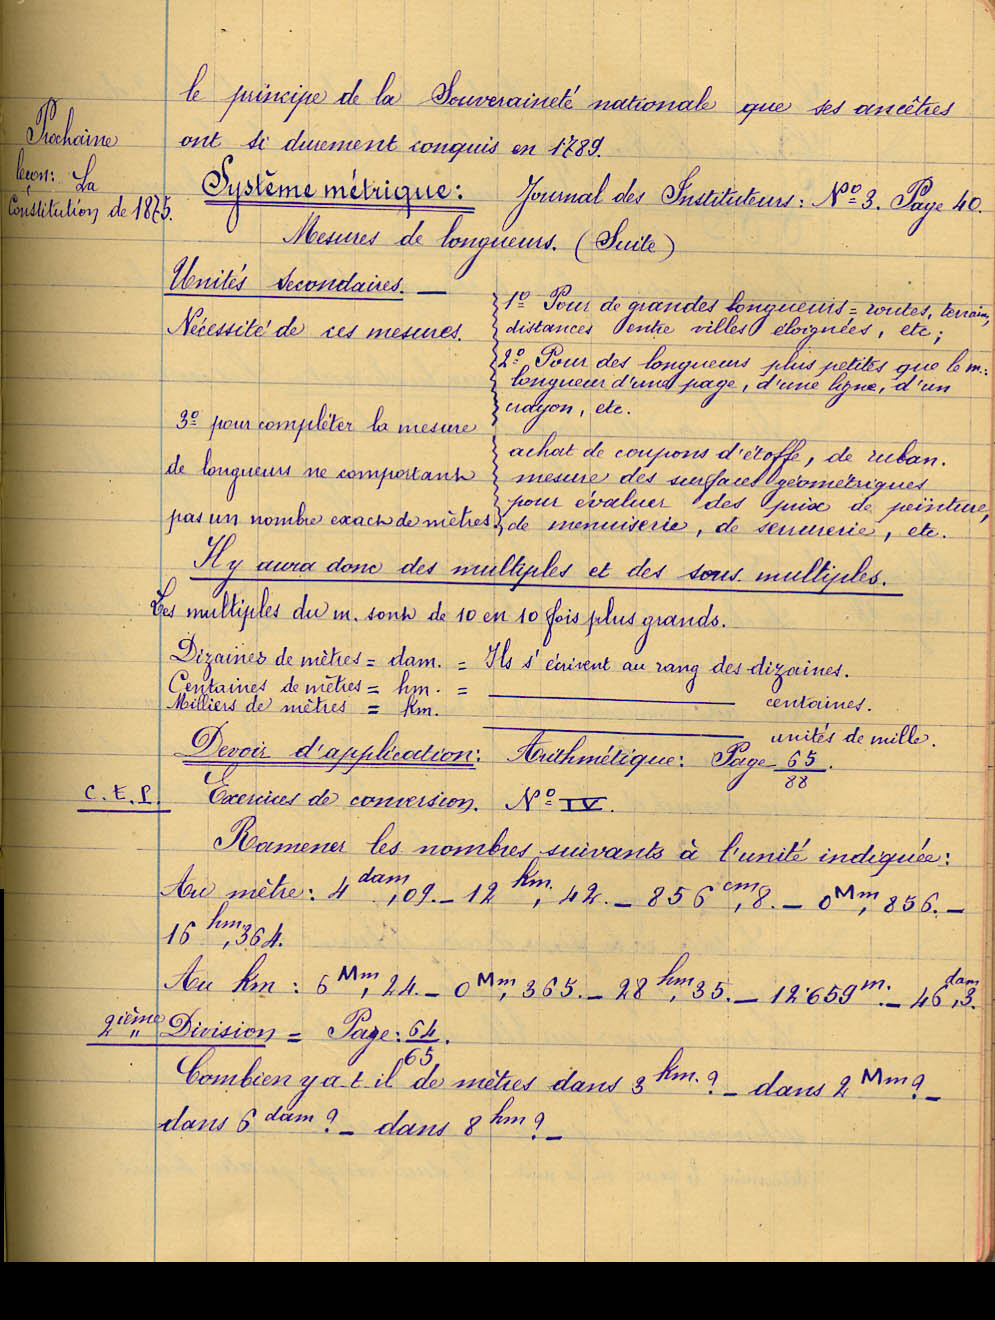 le principe de la Souveraineté nationale que ses ancêtres
ont si durement conquis en 1789.
Prochaine
leçon: La
Constitution de 1875.
Système métrique: Journal des Instituteurs: Nº 3. Page 40.
Mesures de longueurs. (Suite)
Unités secondaires. —
Nécessité de ces mesures.
1º Pour de grandes longueurs = routes, terrain,
distances entre villes éloignées, etc;
2º Pour des longueurs plus petites que le m.:
longueur d'une page, d'une ligne, d'un
crayon, etc.
3º pour compléter la mesure
de longueurs ne comportant
pas un nombre exact de mètres.
achat de coupons d'étoffe, de ruban.
mesure des surfaces géométriques
pour évaluer des prix de peinture,
de menuiserie, de serrurerie, etc.
Il y aura donc des multiples et des sous multiples.
Les multiples du m. sont de 10 en 10 fois plus grands.
Dizaines de mètres = dam. = Ils s'écrivent au rang des dizaines.
Centaines de mètres = hm. = ———— centaines.
Milliers de mètres = km. ———— unités de mille.
Devoir d'application: Arithmétique: Page 65/88.
C.E.P. Exercices de conversion. Nº IV.
Ramener les nombres suivants à l'unité indiquée:
Au mètre: 4 dam,09. — 12 km, 42. — 856 cm,8. — 0 Mm, 856. —
16 hm,364.
Au km: 6 Mm, 24. — 0 Mm, 365. — 28 hm, 35. — 12.659 m. — 46 dam,3.
2ième Division = Page: 64/65.
Combien y a-t-il de mètres dans 3 km.? — dans 2 Mm? —
dans 6 dam? — dans 8 hm? —